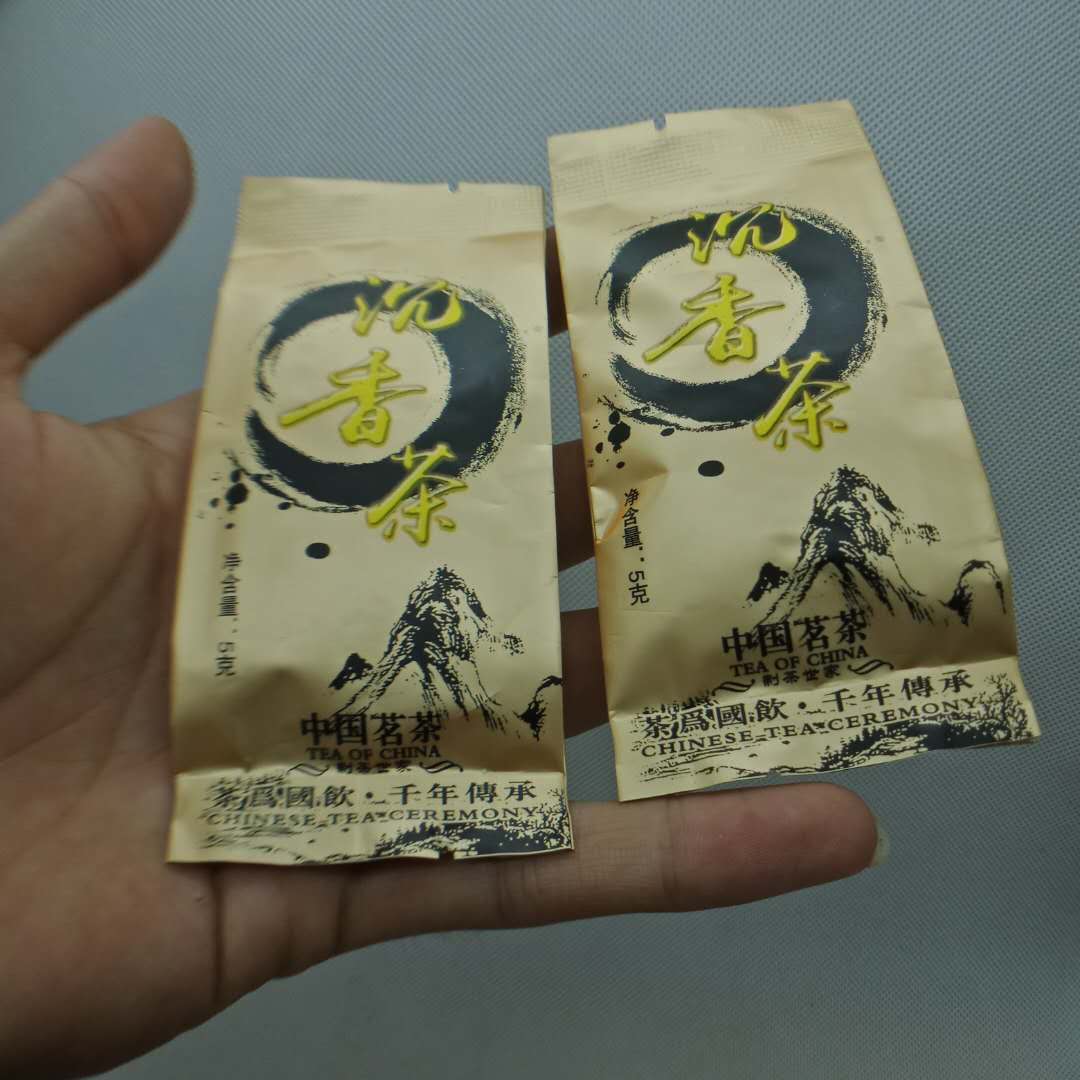 沉香茶
净含量：5克
中国茗茶
TEA OF CHINA
制茶世家
茶為國飲·千年傳承
CHINESE TEA CEREMONY
沉香茶
净含量：5克
中国茗茶
TEA OF CHINA
制茶世家
茶為國飲·千年傳承
CHINESE TEA CEREMONY